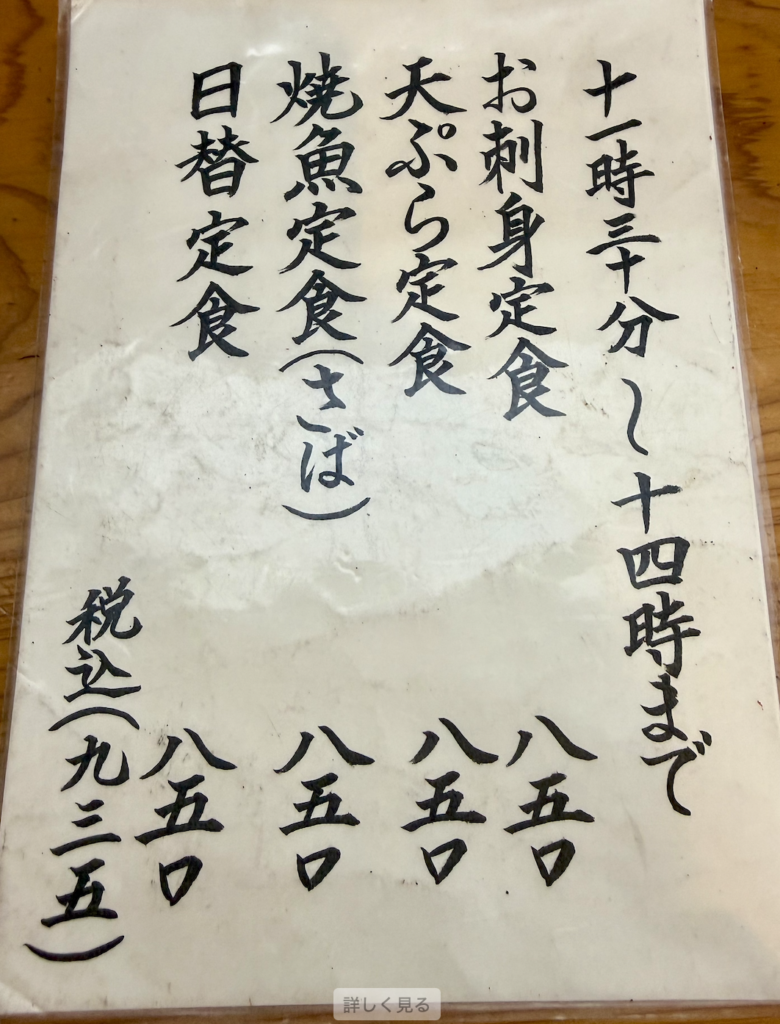 十一時三十分〜十四時まで
お刺身定食 八五〇
天ぷら定食 八五〇
焼魚定食(さば) 八五〇
日替定食 八五〇
税込(九三五)
詳しく見る